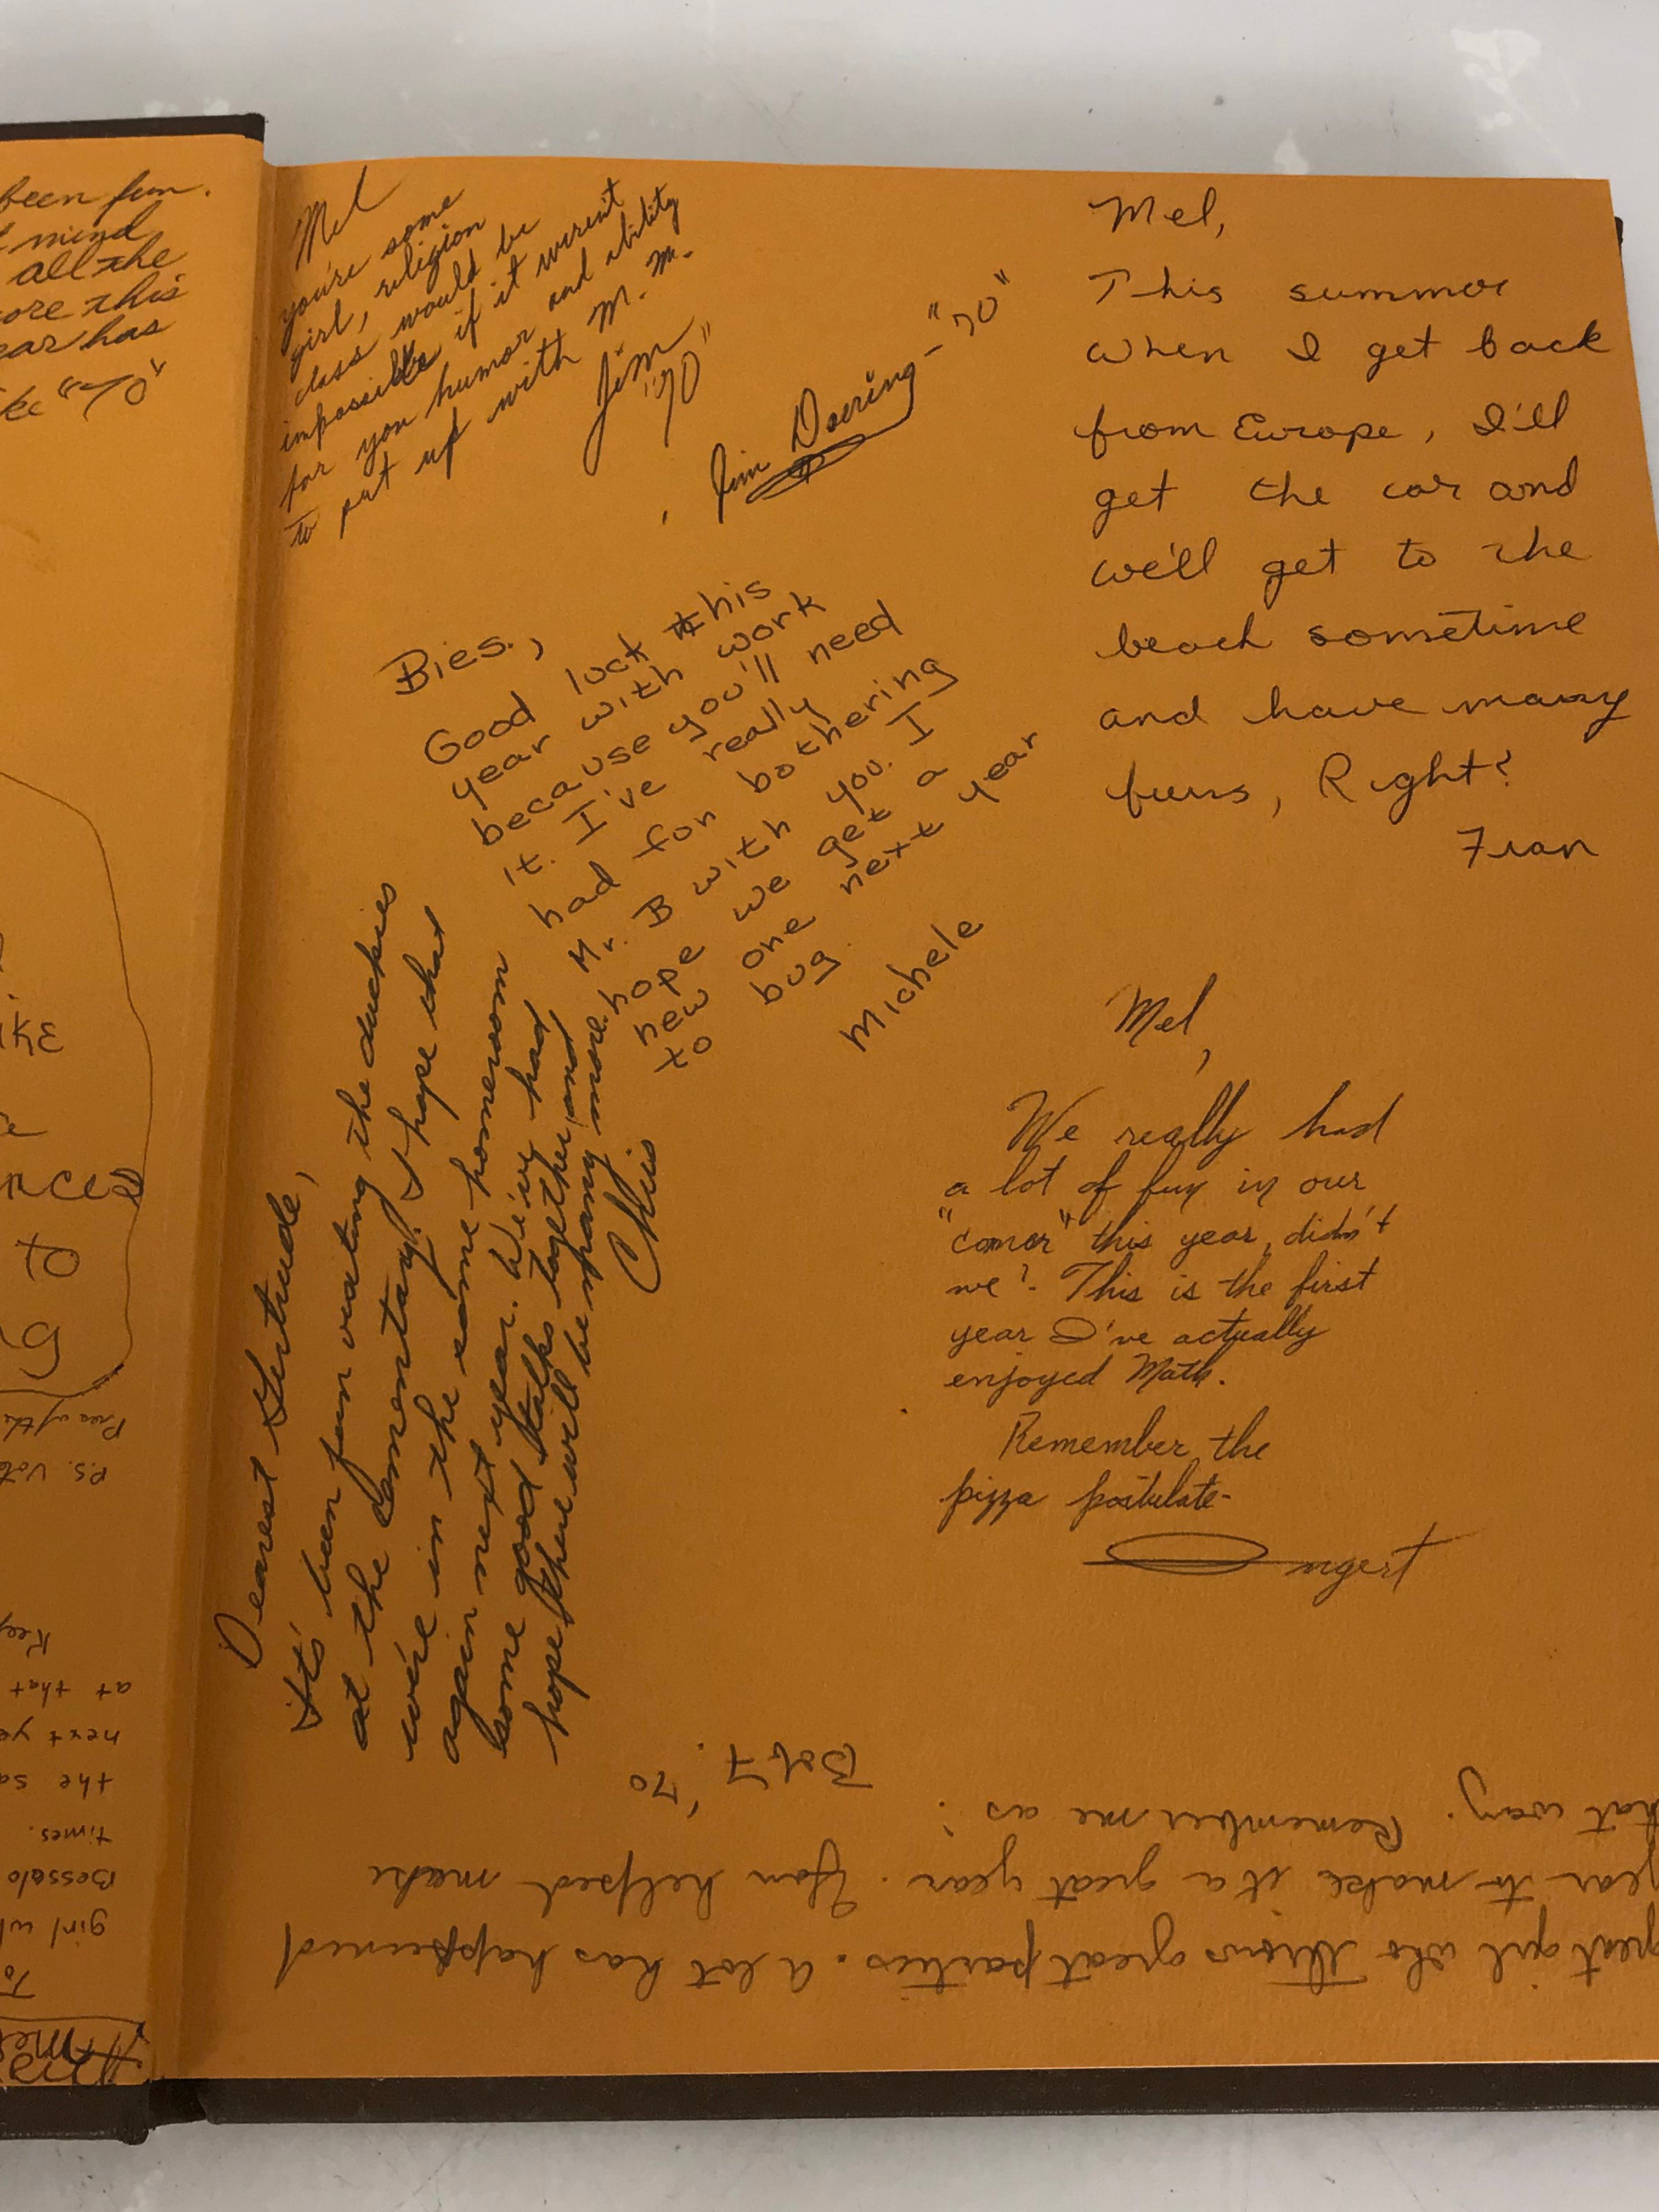 been fun.
mind
all the
ore this
ear has
ke "70"
nces
P.S. Vote
at that
next ye
the sa
times.
Bossalo
girl wh
To
Mel
you're some
girl, religion
class would be
impossible if it weren't
for you humor and ability
to put up with M. M.
Jim
"70"
Jim Doering - "70"
Mel,
This summer
when I get back
from Europe, I'll
get the car and
we'll get to the
beach sometime
and have many
funs, Right?
Fran
Bies.,
Good luck this
year with work
because you'll need
it. I've really
had fun bothering
Mr. B with you. I
hope we get a
new one next year
to bug.
Michele
Dearest Gertrude,
It's been fun visiting the duckies
at the cementary. I hope that
we're in the same homeroom
again next year. We've had
some good talks together, and
hope there will be many more.
Chris
Mel,
We really had
a lot of fun in our
"corner" this year, didn't
we? This is the first
year I've actually
enjoyed Math.
Remember the
pizza postulate-
ngert
great girl who throws great parties. A lot has happened
year to make it a great year. You helped make
that way. Remember me as:
Bob F. '70